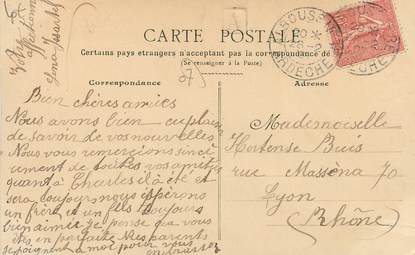 CARTE POSTALE
Certains pays étrangers n'acceptent pas la correspondance de
(Se renseigner à la Poste)
Correspondance
Adresse
07
Bien chères amies
Nous avons bien eu plaisir
de savoir de vos nouvelles
Nous vous remercions sincè
ument de toutes vos amitiés
quant à Charles il à été et
sera toujours nous espérons
un frère et un fils toujours
bien aimée je pense que vous
êtes en parfaite Mes parents
se joignent a moi pour vous
embrasser
Votre
affectionnée
Mademoiselle
Hortense Buis
rue Masséna 70
Lyon
(Rhône)
ARDECHE